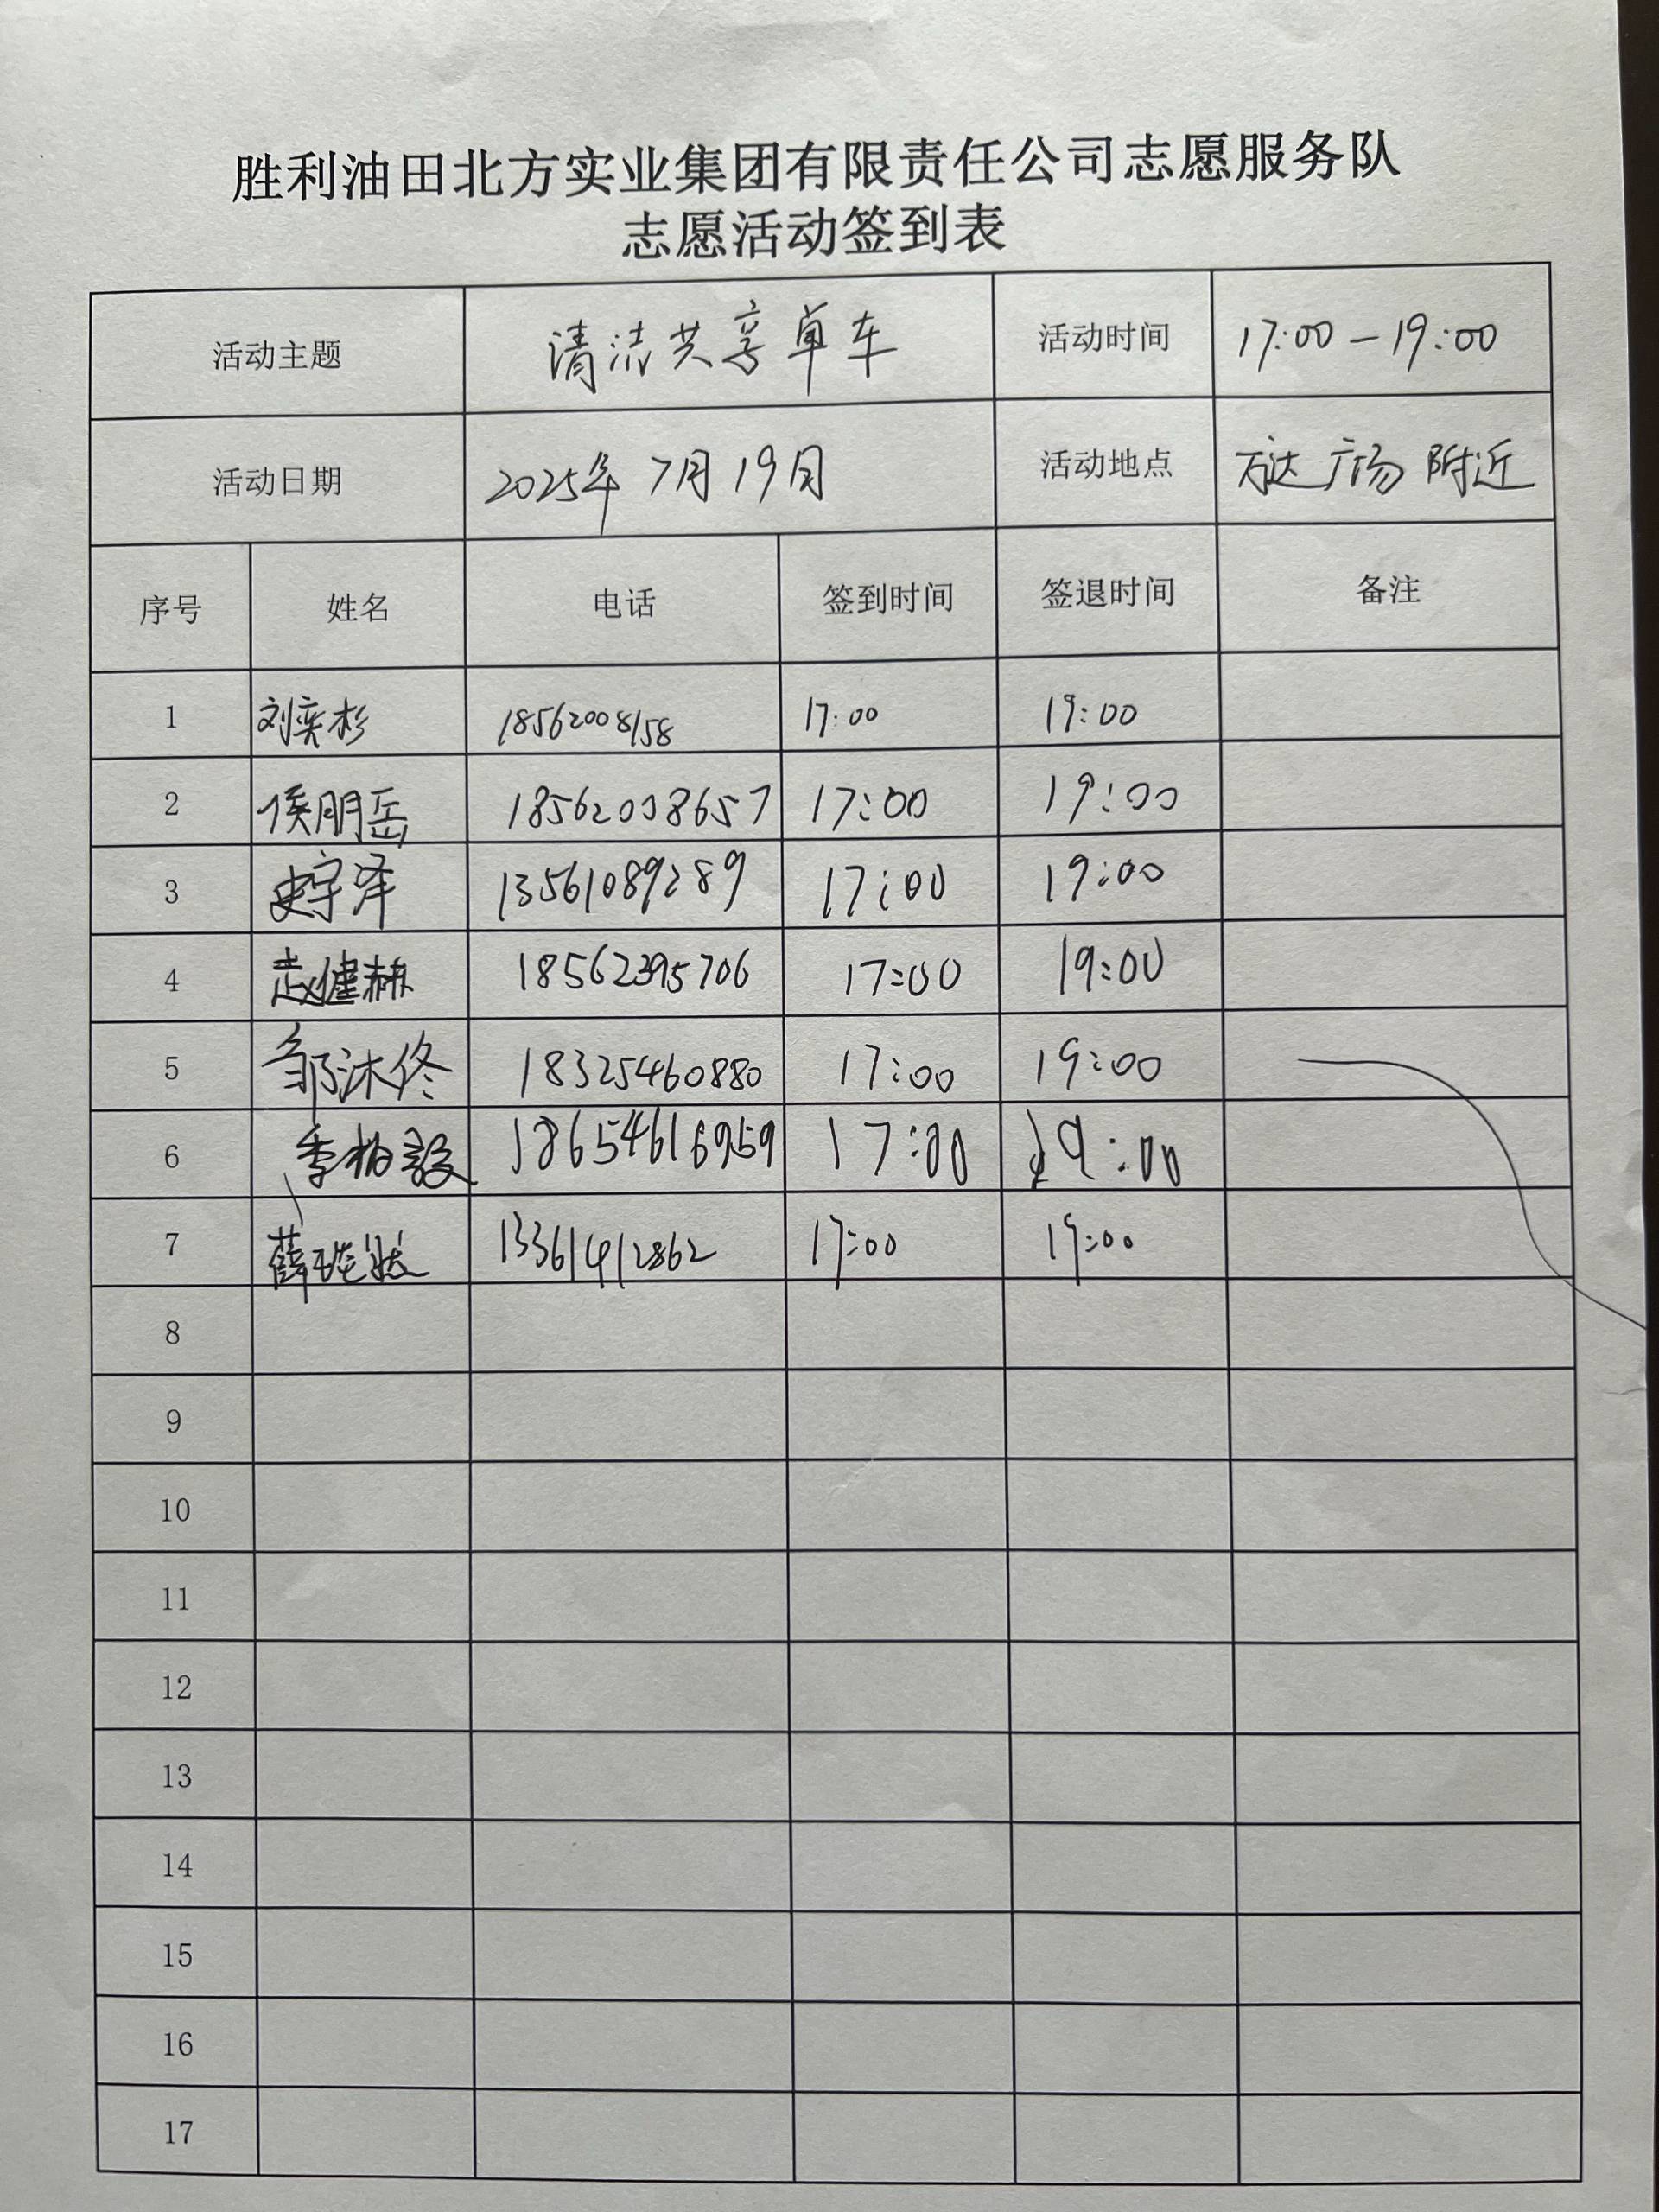 胜利油田北方实业集团有限责任公司志愿服务队
志愿活动签到表
活动主题 清洁共享单车 活动时间 17:00-19:00
活动日期 2025年7月19日 活动地点 万达广场附近
序号 姓名 电话 签到时间 签退时间 备注
1 刘奕杉 18562008158 17:00 19:00
2 侯朋岳 18562008657 17:00 19:00
3 史宇泽 13561089289 17:00 19:00
4 赵健赫 18562395706 17:00 19:00
5 邹沐佟 18325460880 17:00 19:00
6 季柏毅 18654616959 17:00 19:00
7 薛 13361412862 17:00 19:00
8
9
10
11
12
13
14
15
16
17